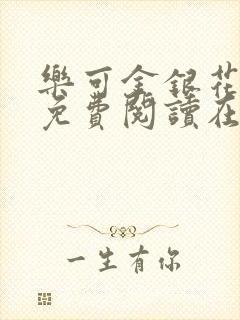 樂可金銀花
免費閱讀在
一生有你